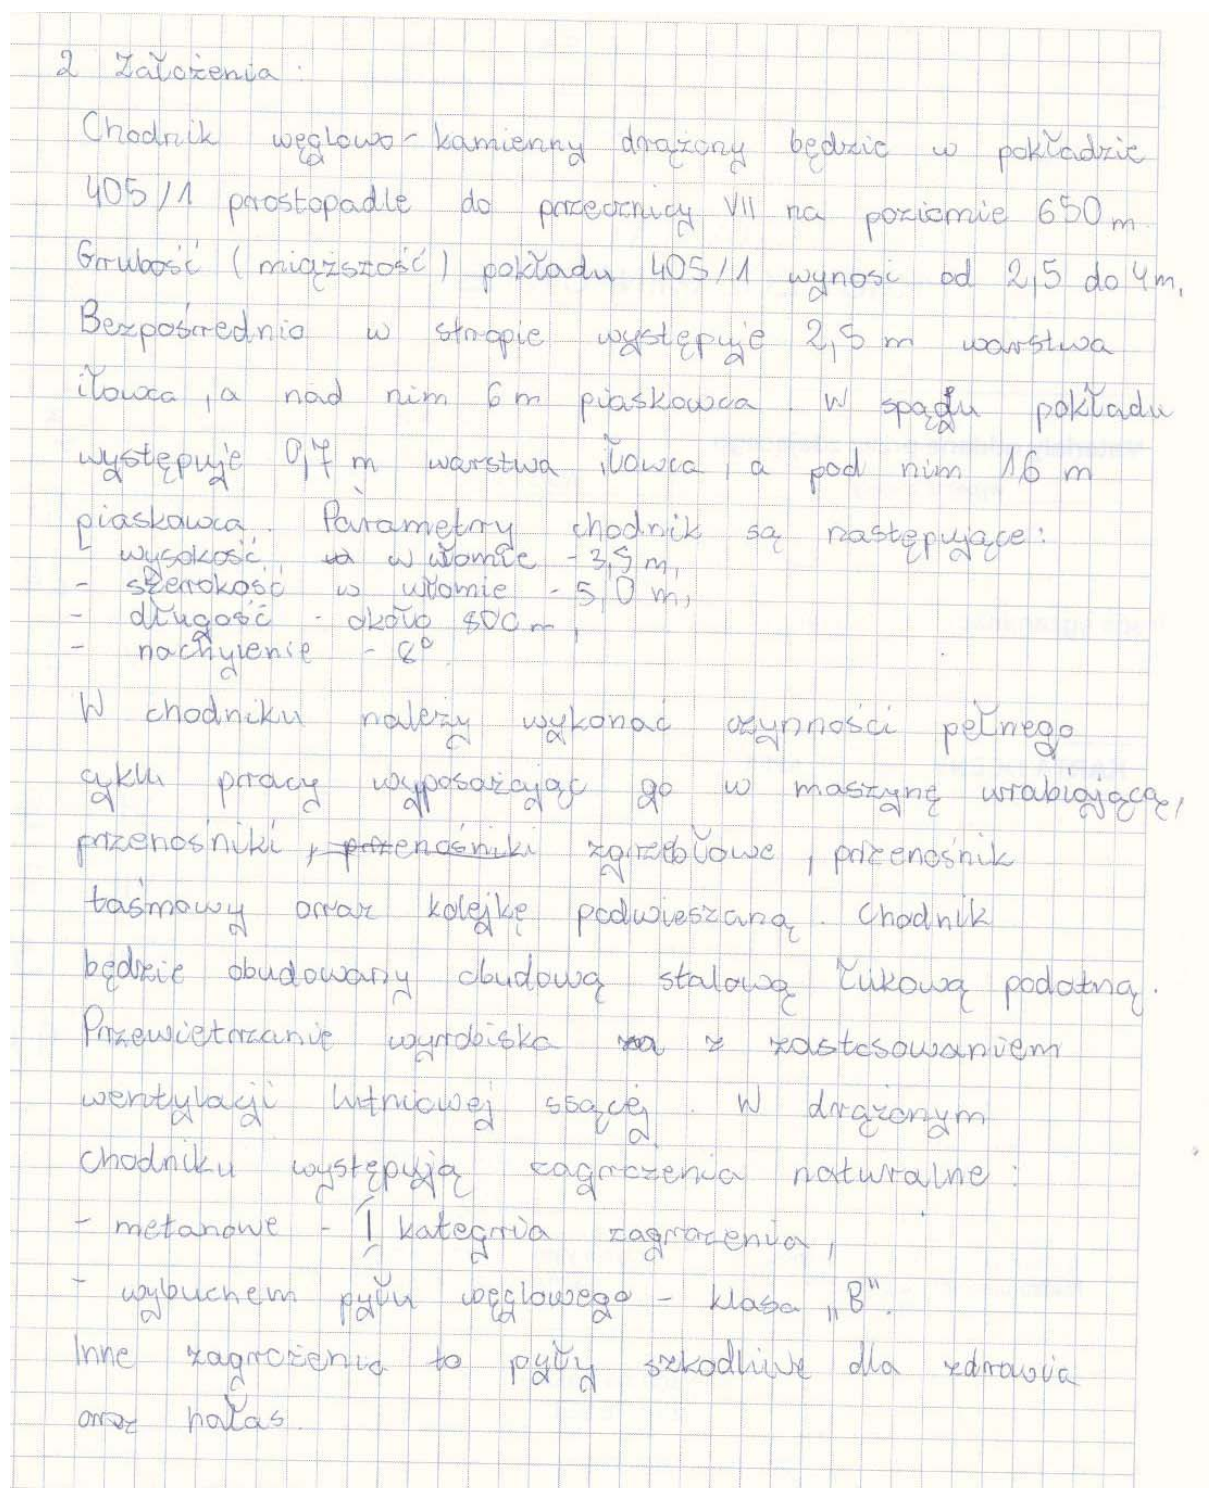 2 Założenia :
Chodnik węglowo-kamienny drążony będzie w pokładzie
405/1 prostopadle do przecznicy VII na poziomie 650 m.
Grubość (miąższość) pokładu 405/1 wynosi od 2,5 do 4 m.
Bezpośrednio w stropie występuje 2,5 m warstwa
iłowca, a nad nim 6 m piaskowca. W spągu pokładu
występuje 0,7 m warstwa iłowca, a pod nim 16 m
piaskowca. Parametry chodnik są następujące:
- wysokość w wyłomie - 3,5 m,
- szerokość w wyłomie - 5,0 m,
- długość - około 800 m,
- nachylenie - 8°
W chodniku należy wykonać czynności pełnego
cyklu pracy wyposażając go w maszynę urabiającą,
przenośniki, przenośniki zgrzebłowe, przenośnik
taśmowy oraz kolejkę podwieszaną. Chodnik
będzie obudowany obudową stalową łukową podatną.
Przewietrzanie wyrobiska z zastosowaniem
wentylacji lutniowej ssącej. W drążonym
chodniku występują zagrożenia naturalne :
- metanowe - I kategoria zagrożenia,
- wybuchem pyłu węglowego - klasa „B".
Inne zagrożenia to pyły szkodliwe dla zdrowia
oraz hałas.